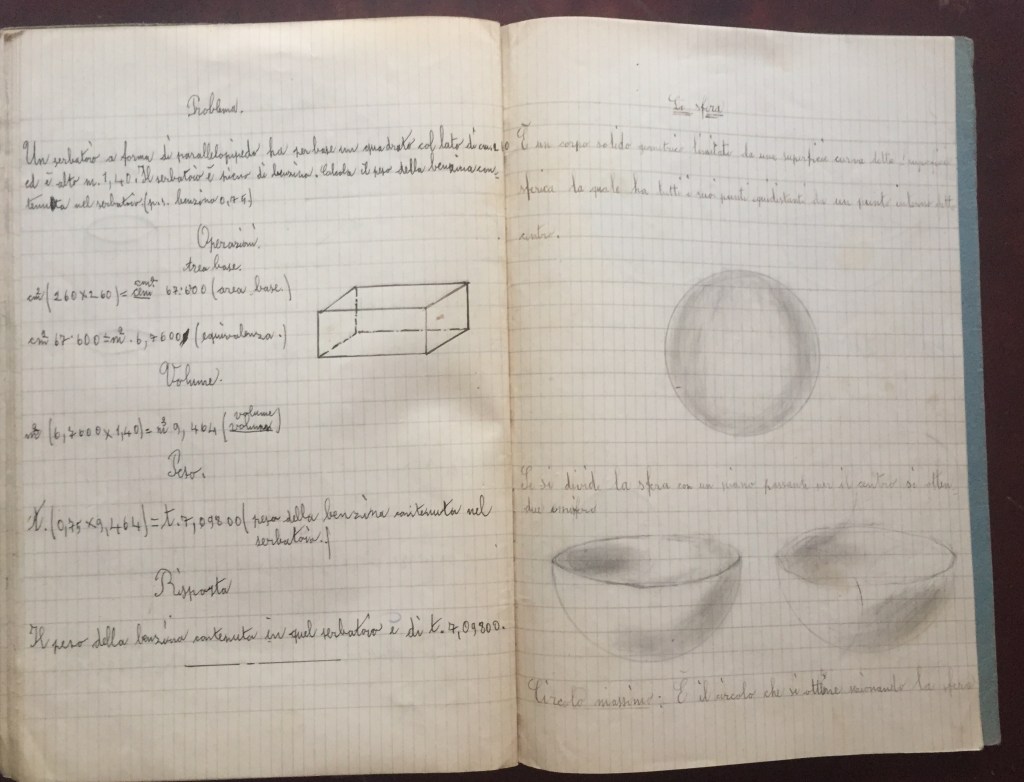 Problema.
Un serbatoio a forma di parallelepipedo ha per base un quadrato col lato di cm.
ed è alto m. 1,40. Il serbatoio è pieno di benzina. Calcola il peso della benzina con-
tenuta nel serbatoio. (p.s. benzina 0,75)
Operazioni.
Area base.
cm² (260×260) = cm² 67.600 (area base.)
cm² 67.600 = m². 6,7600 (equivalenza.)
Volume.
m³ (6,7600×1,40) = m³ 9,464 (volume)
Peso.
t. (0,75×9,464) = t. 7,09800 (peso della benzina contenuta nel
serbatoio.)
Risposta
Il peso della benzina contenuta in quel serbatoio è di t. 7,09800.
La sfera
È un corpo solido geometrico limitato da una superficie curva detta
sferica la quale ha tutti i suoi punti equidistanti da un punto interno detto
centro.
Se si divide la sfera con un piano passante per il centro si
due emisferi
Circolo massimo: È il circolo che si ottiene sezionando la sfera